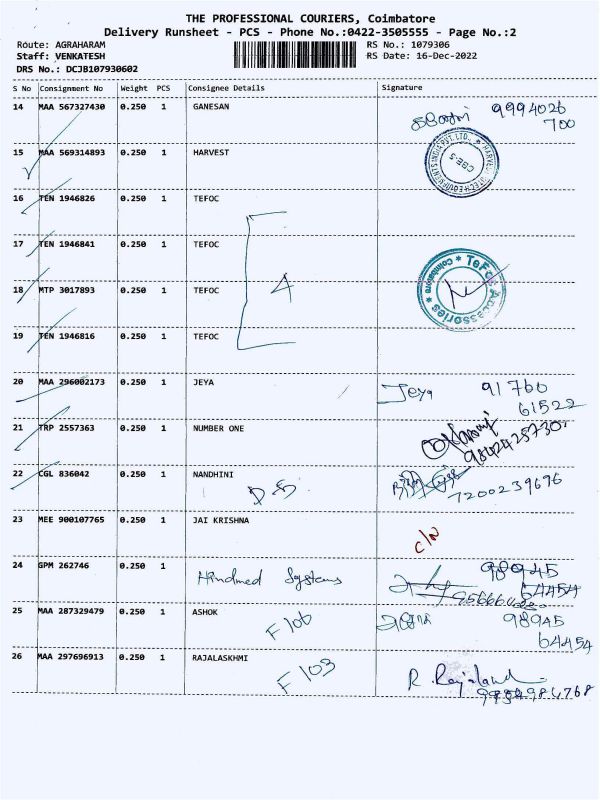 THE PROFESSIONAL COURIERS, Coimbatore
Delivery Runsheet - PCS - Phone No.:0422-3505555 - Page No.:2
Route: AGRAHARAM RS No.: 1079306
Staff: VENKATESH RS Date: 16-Dec-2022
DRS No.: DCJB107930602
S No Consignment No Weight PCS Consignee Details Signature
14 MAA 567327430 0.250 1 GANESAN 9994026
700
15 MAA 569314893 0.250 1 HARVEST
16 TEN 1946826 0.250 1 TEFOC
17 TEN 1946841 0.250 1 TEFOC
4
18 MTP 3017893 0.250 1 TEFOC
TeFoc Accessories * Coimbatore *
19 TEN 1946816 0.250 1 TEFOC
20 MAA 296002173 0.250 1 JEYA Jeya 91760
61522
21 TRP 2557363 0.250 1 NUMBER ONE
9842425730
22 CGL 836042 0.250 1 NANDHINI
7200239696
23 MEE 900107765 0.250 1 JAI KRISHNA
C/N
24 GPM 262746 0.250 1 Hindmed Systems 98945
64454
25 MAA 287329479 0.250 1 ASHOK 98945
F 106 64454
26 MAA 297696913 0.250 1 RAJALASKHMI
F 103